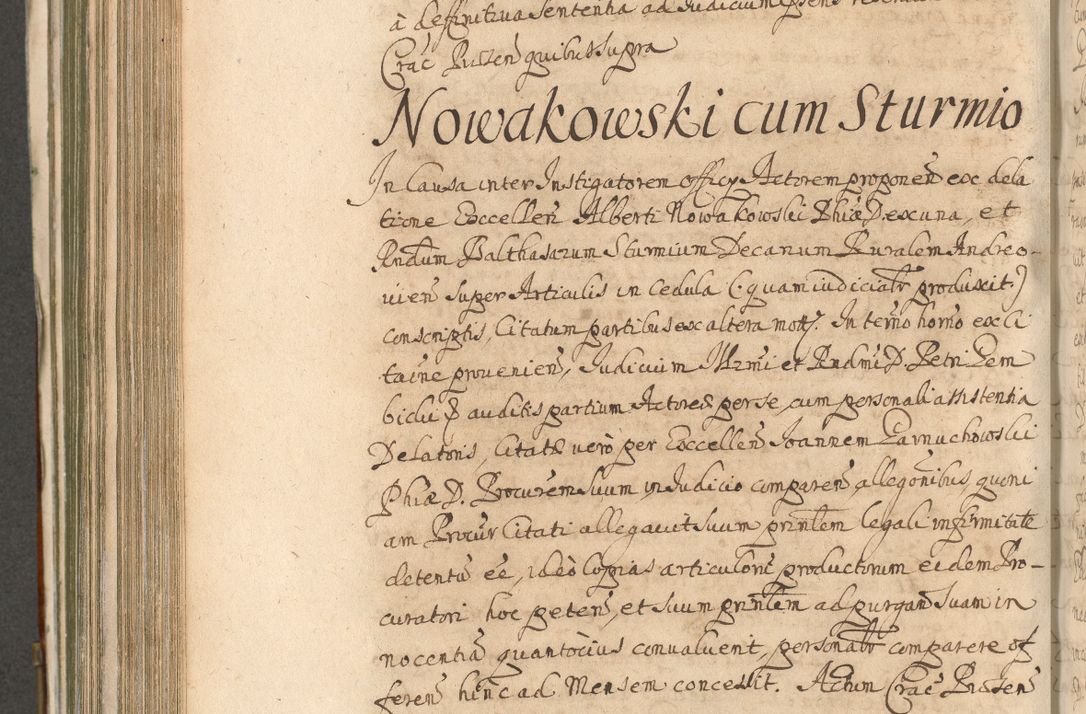 à deffinitiva Sententia ad Judicium
Crac̃ Putteñ quibus supra
Nowakowski cum Sturmio
In Causa inter Instigatorem officy Actorem proponeñ ex dela
tione Excelleñ Alberti Nowakowski Phiæ D. ex una, et
Rndum Balthasarum Sturmium Decanum Ruralem Andreo-
vieñ super Articulis in Cedula (: quam iudicialr produxit :)
conscriptis, Citatum partibus ex altera mott. In term̃o horno ex ci
taõne provenieñ, Judicium Illrmi et Rndmi D. Petri Gem
bicki E auditis partium Actoreæ per se, cum personali assistentia
Delatoris, Citatæ verò per Excelleñ Joannem Garnuchowski
Phiæ D. Procurẽm suum in Judicio compareñ, allegõnibus, quoni
am Procur̃ Citati allegavit suum prinlem legali infirmitate
detentũ eẽ, ideò Copias articulorũ productorum eidem Pro-
curatori hoc peteñ, et suum prinlem ad purgand̃ suam in
nocentiã quantocius convaluerit, personalr comparere of
fereñ hinc ad Mensem concessit. Actum Crac̃